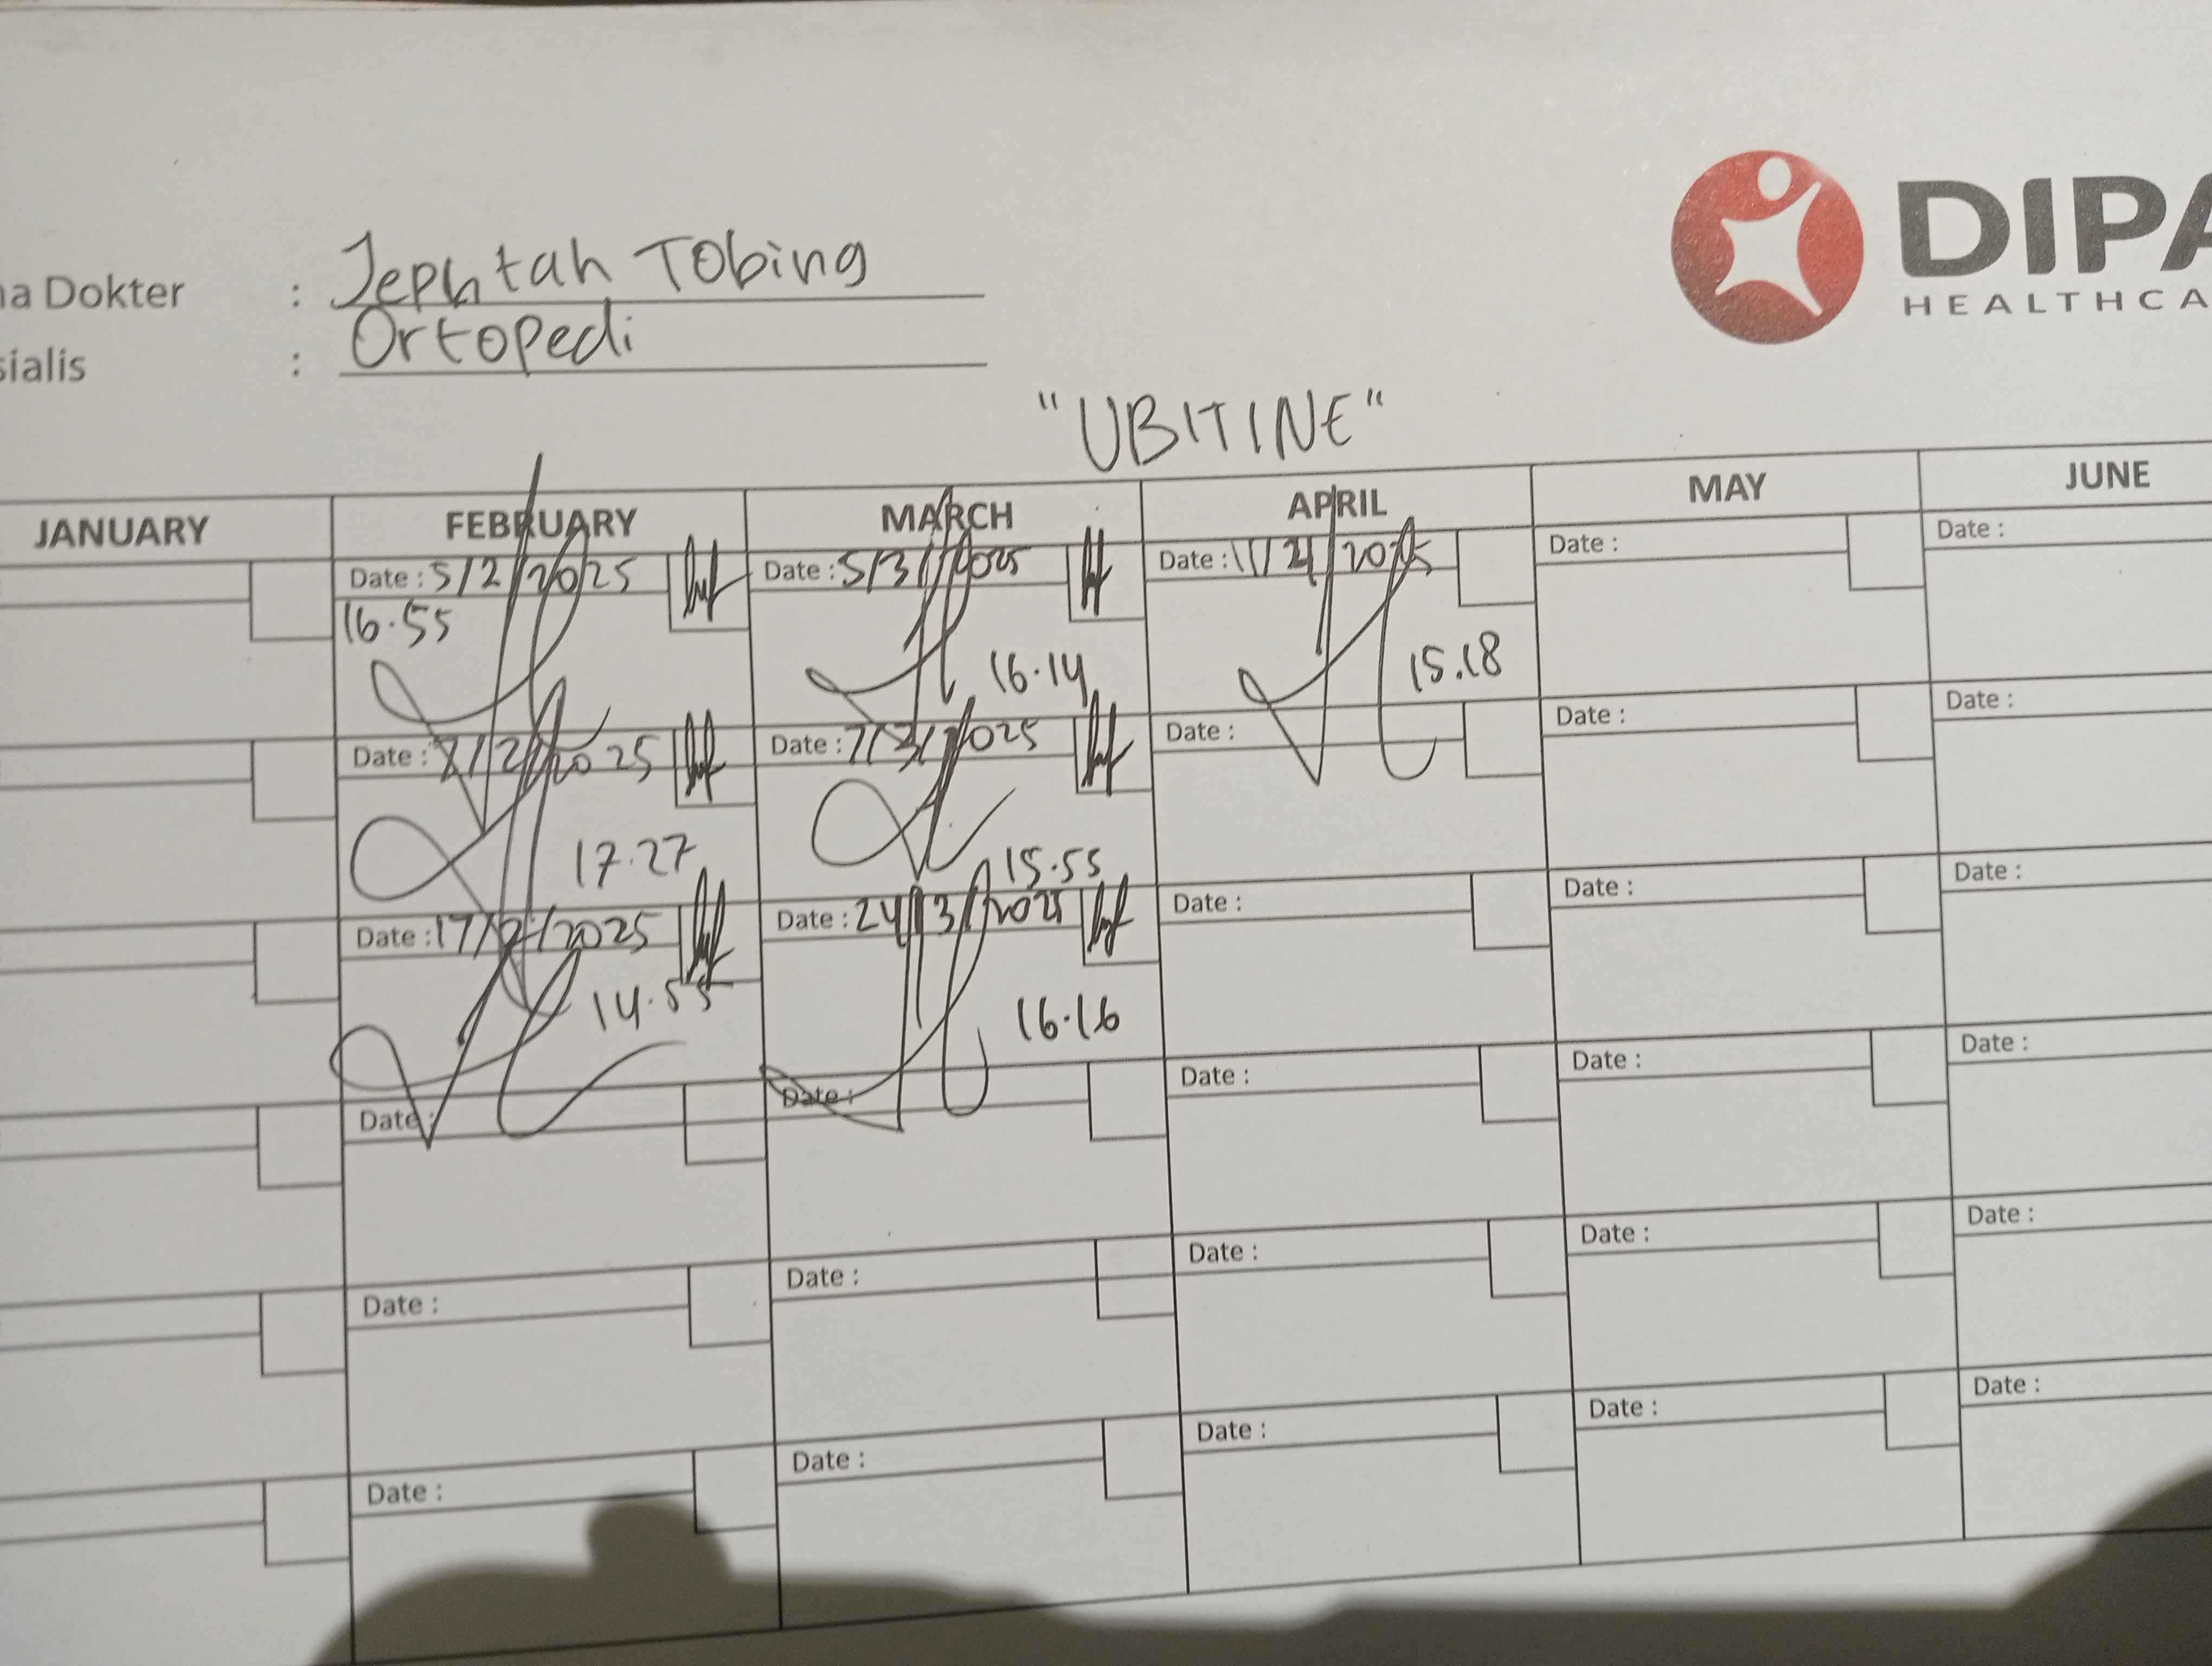 DIPA
HEALTHCA
na Dokter : Jephtah Tobing
sialis : Ortopedi
"UBITINE"
JANUARY FEBRUARY MARCH APRIL MAY JUNE
Date : 5/2/2025 Date : 5/3/2025 Date : 11/ /2025 Date : Date :
16.55 16.14 15.18
Date : 7/2/2025 Date : 7/3/2025 Date : Date : Date :
17.27 15.55
Date : 17/2/2025 Date : 24/3/2025 Date : Date : Date :
14.55 16.16
Date : Date : Date : Date : Date :
Date : Date : Date : Date : Date :
Date : Date : Date : Date : Date :